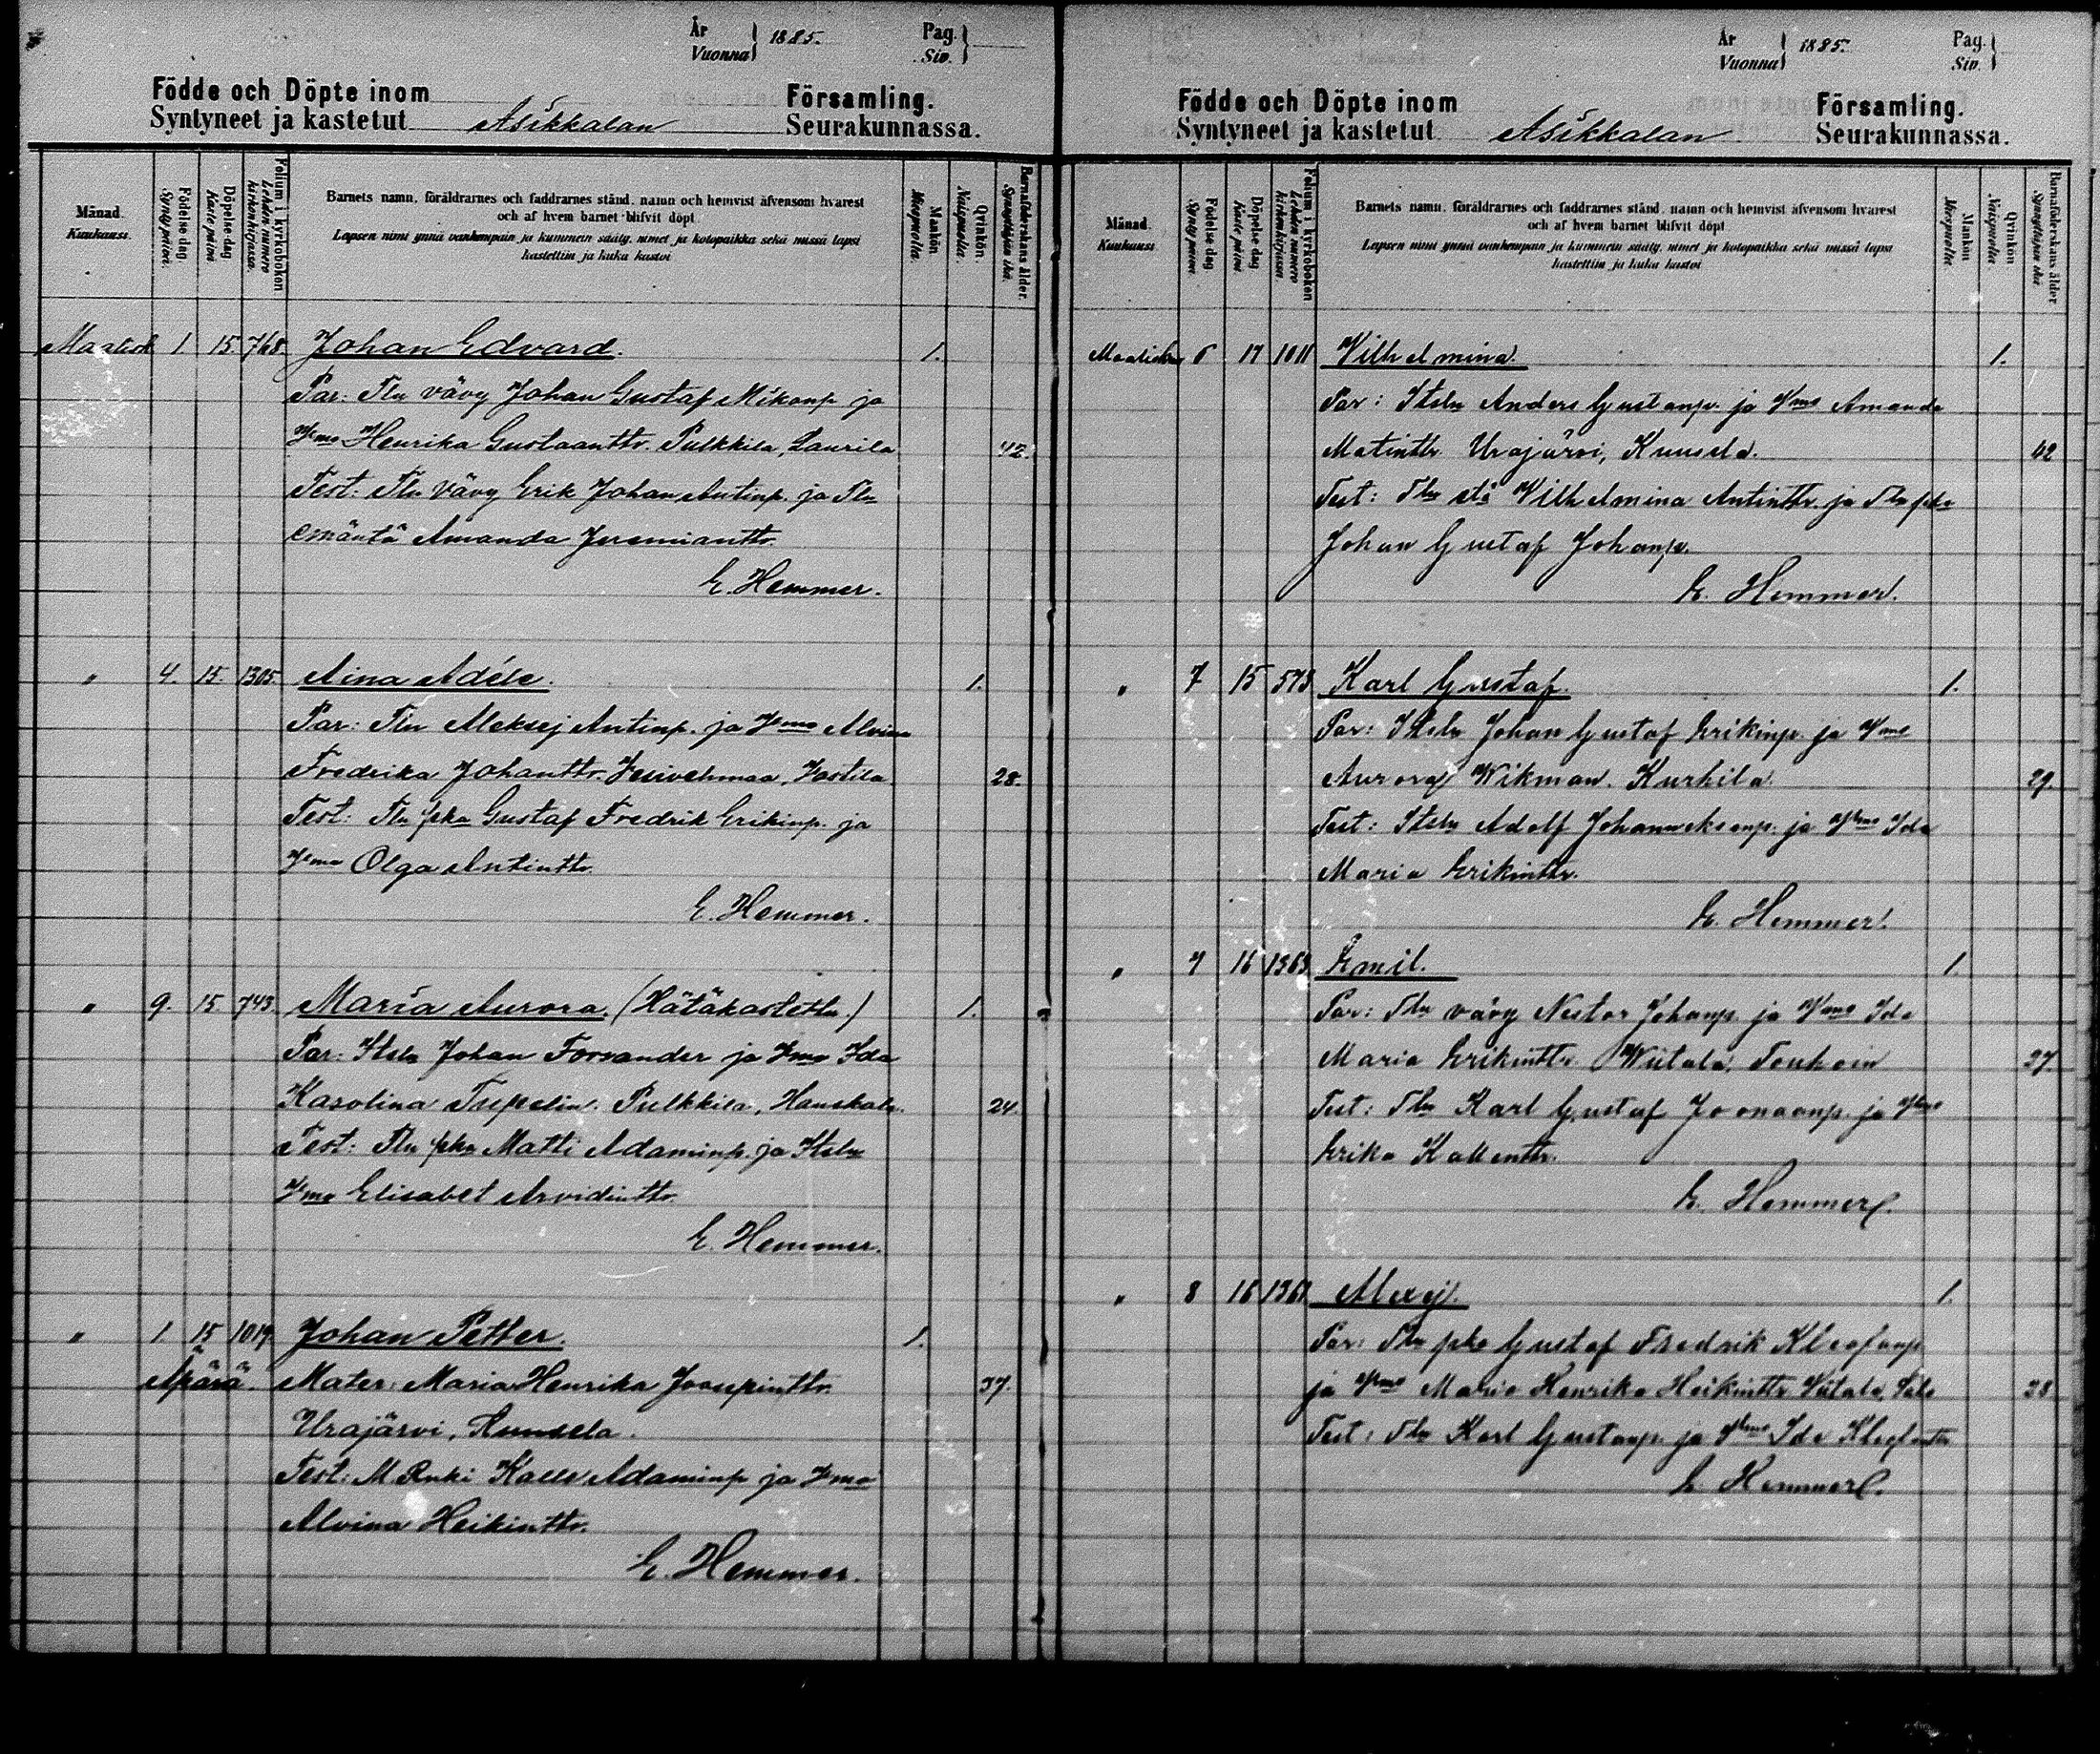 År
Vuonna
1885.
Pag.
Siv.
Födde och Döpte inom
Församling.
Syntyneet ja kastetut Asikkalan Seurakunnassa.
Månad.
Kuukausi.
Födelse dag.
Synty päivä.
Döpelse dag
Kaste päivä
Folium i kyrkoboken
Lehden numero kirkonkirjassa.
Barnets namn, föräldrarnes och faddrarnes stånd, namn och hemvist äfvensom hvarest
och af hvem barnet blifvit döpt.
Lapsen nimi ynnä vanhempain ja kummein sääty, nimet ja kotopaikka sekä missä lapsi
kastettiin ja kuka kastoi
Mankön
Miespuolia.
Qvinkön.
Naispuolia.
Barnaföderskans ålder.
Synnyttäjän ikä.
Maalisk 1 15. 768. Johan Edvard. 1.
Par: Tln vävy Johan Gustaf Mikonp. ja
Vmo Henrika Gustaantr. Pulkkila, Laurila 42.
Test: Tln vävy Erik Johan Antinp. ja Tln
emäntä Amanda Jeremiantr.
E. Hemmer.
" 4. 15. 1305. Aina Adéle. 1.
Par: Tln Aleksej Antinp. ja Vmo Alvina
Fredrika Johanttr. Vesivehmaa, Jostila 28.
Test: Tln pka Gustaf Fredrik Erikinp. ja
Vmo Olga Antinttr.
E. Hemmer.
" 9. 15. 743. Maria Aurora. (Hätäkastettu.) 1.
Par: Itsln Johan Forsander ja Vmo Ida
Karolina Tupelin. Pulkkila, Hanskala. 24.
Test: Tln pka Matti Adaminp. ja Itsln
Vmo Elisabet Arvidinttr.
E. Hemmer.
" 1. 15 1019. Johan Petter. 1.
Äpärä. Mater: Maria Henrika Joosepinttr. 37.
Urajärvi, Kuusela.
Test: M. Ruki Kalle Adaminp ja Vmo
Alvina Heikinttr.
E. Hemmer.
År
Vuonna
1885.
Pag.
Siv.
Födde och Döpte inom
Församling.
Syntyneet ja kastetut Asikkalan Seurakunnassa.
Månad.
Kuukausi
Födelse dag
Synty päivä
Döpelse dag
Kaste päivä
Folium i kyrkoboken
Lehden numero kirkonkirjassa.
Barnets namn, föräldrarnes och faddrarnes stånd, namn och hemvist äfvensom hvarest
och af hvem barnet blifvit döpt
Lapsen nimi ynnä vanhempain ja kummein sääty, nimet ja kotopaikka sekä missä lapsi
kastettiin ja kuka kastoi
Mankön
Miespuolia
Qvinkön
Naispuolia.
Barnaföderskans ålder
Synnyttäjän ikä
Maalisku 6 17 1011 Vilhelmina. 1.
Par: Itsln Anders Gustanp. ja Vmo Amanda
Matinttr. Urajärvi, Kuusela. 42
Test: Tln Vilhelmina Antinttr. ja Tln pka
Johan Gustaf Johanp.
E. Hemmer.
" 7 15 573 Karl Gustaf. 1.
Par: Itsln Johan Gustaf Erikinp. ja Vmo
Aurora Wikman. Kurhila. 29.
Test: Itsln Adolf Johanneksenp. ja Vmo Ida
Maria Erikinttr.
E. Hemmer.
" 7 16 1363. Emil. 1
Par: Tln vävy Nestor Johanp. ja Vmo Ida
Maria Erikinttr. Wiitala, Tenhoin 27.
Test: Tln Karl Gustaf Joonaanp. ja Vmo
Erika Kallenttr.
E. Hemmer.
" 8 16 1361 Alexej. 1.
Par: Tln pka Gustaf Fredrik Kleofanp
ja Vmo Maria Henrika Heikinttr. Viitala, 28
Test: Tln Karl Gustanp. ja Vmo Ida Kleofanttr
E. Hemmer.